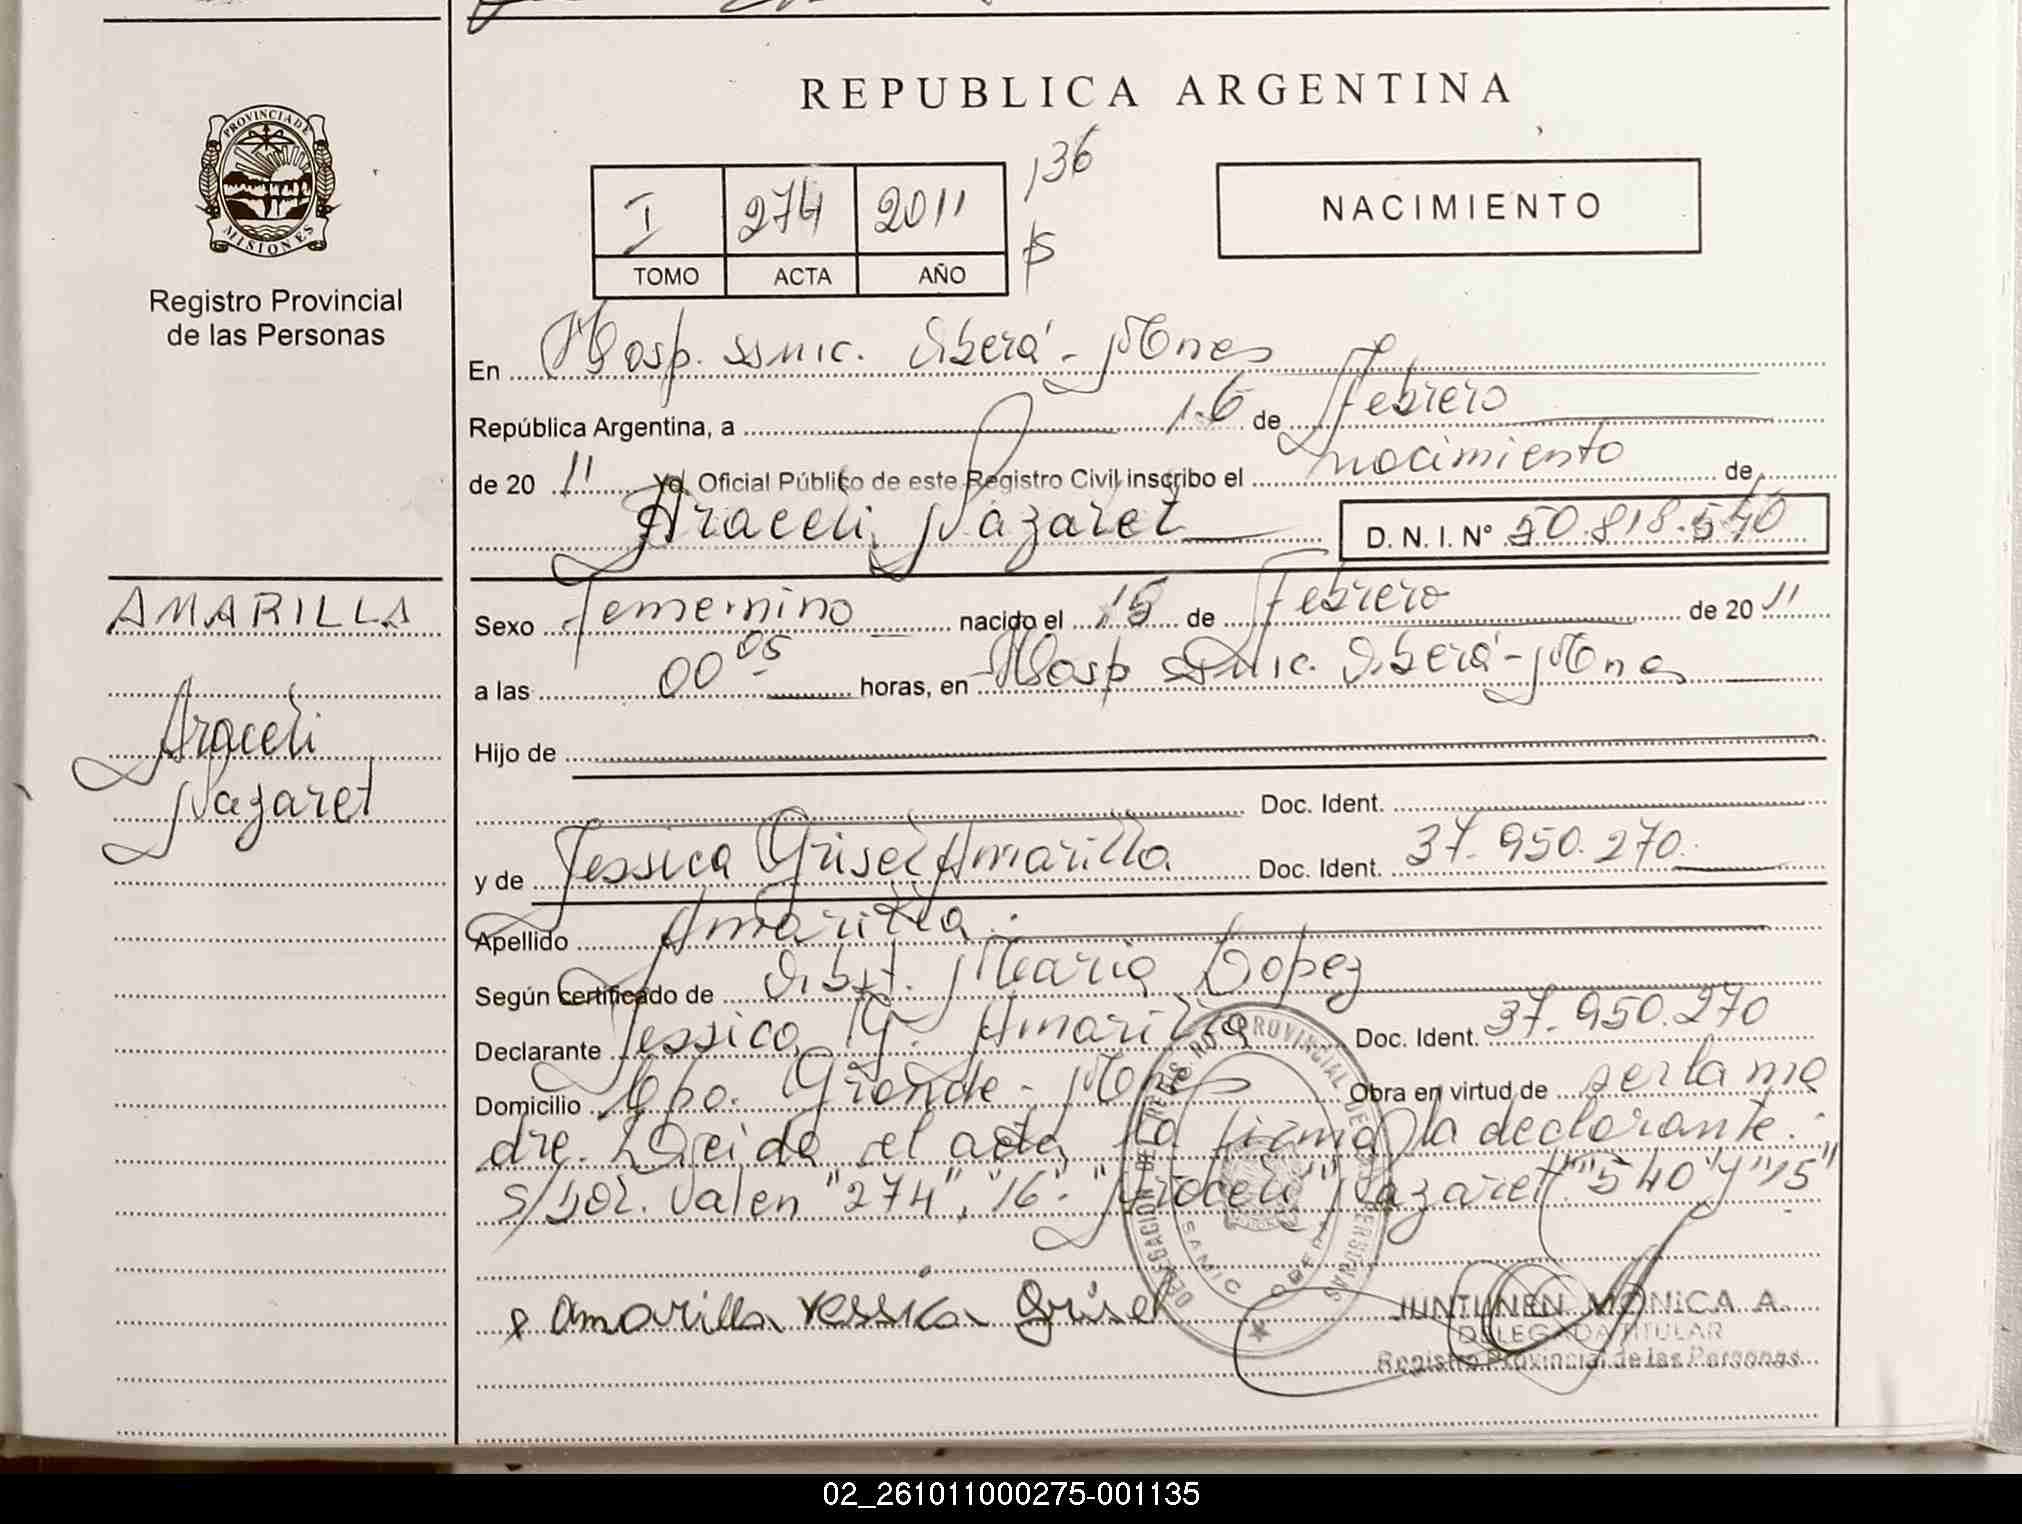 REPUBLICA ARGENTINA
PROVINCIA DE
MISIONES
Registro Provincial
de las Personas
I 274 2011 136
TOMO ACTA AÑO
NACIMIENTO
En Hosp. SAMIC. Oberá - Mnes
República Argentina, a 16 de Febrero
de 20 11 Yo, Oficial Público de este Registro Civil inscribo el nacimiento de
Araceli Nazaret D. N. I. Nº 50.818.540
AMARILLA
Araceli
Nazaret
Sexo Femenino nacido el 15 de Febrero de 20 11
a las 00 05 horas, en Hosp SAMIC. Oberá - Mnes
Hijo de
Doc. Ident.
y de Jessica Grisel Amarilla Doc. Ident. 37.950.270
Apellido Amarilla
Según certificado de Obst. Maria Lopez
Declarante Jessica G. Amarilla Doc. Ident. 37.950.270
Domicilio Cpo. Grande - Mnes Obra en virtud de ser la ma
dre. Leida el acta, la firma la declarante.
S/bor. Valen "274", "16". "Araceli" "Nazaret" "540" y "15"
DELEGACION DE REGISTRO PROVINCIAL DE LAS PERSONAS
SAMIC OBERA
x Amarilla Yessica Grisel
JUNTUNEN MONICA A.
DELEGADA TITULAR
Registro Provincial de las Personas
02_261011000275-001135